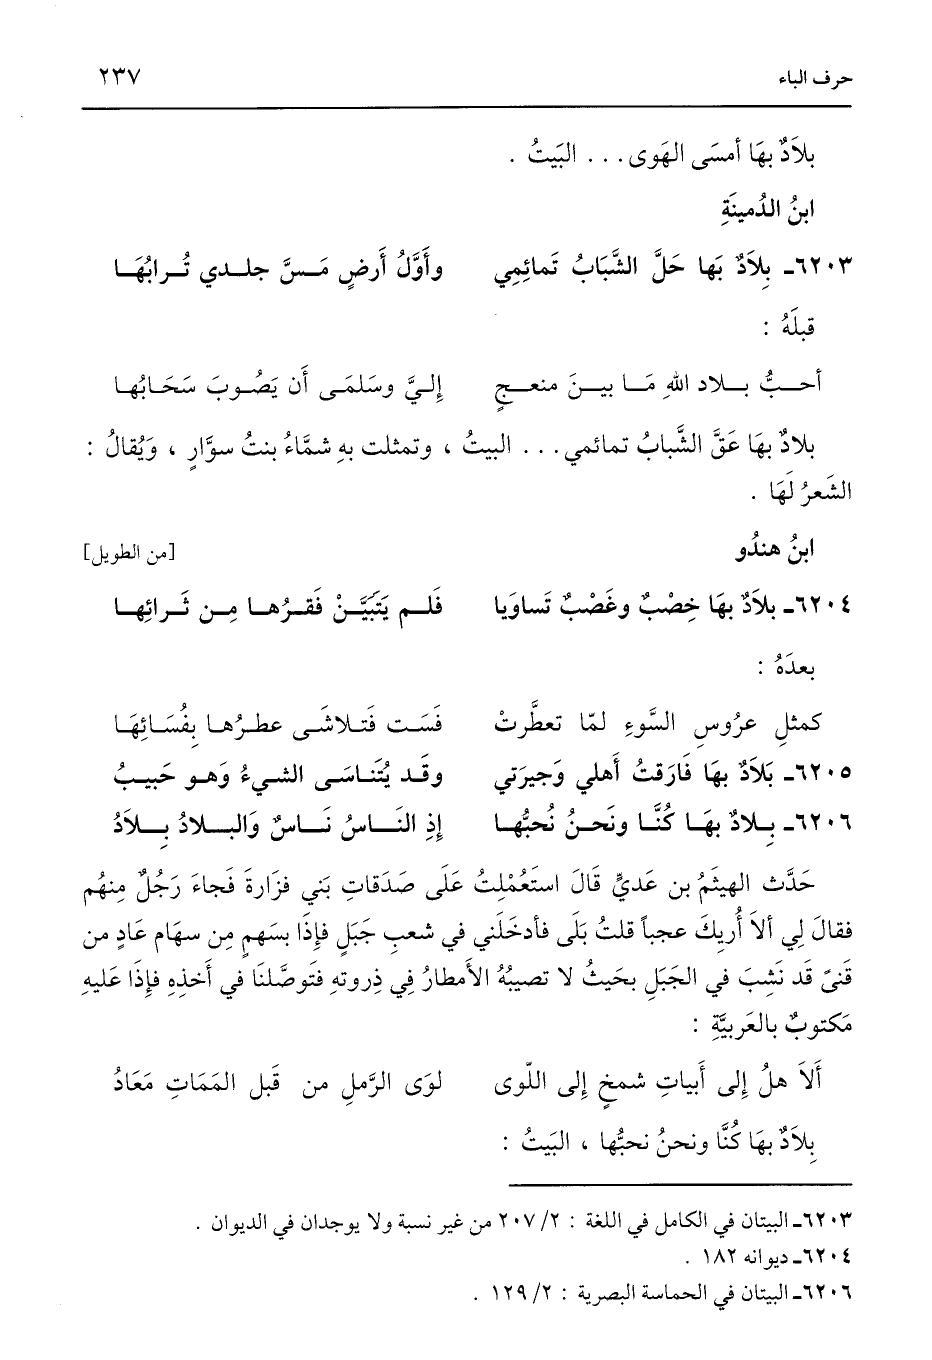 حرف الباء ٢٣٧
بلاَدٌ بهَا أمسَى الهَوى... البَيتُ .
ابنُ الدُمينَةِ
٦٢٠٣ـ بِلاَدٌ بَها حَلَّ الشَّبَابُ تَمائِمِي وأَوَّلُ أَرضٍ مَسَّ جلدي تُرابُهَا
قبلَهُ :
أحبُّ بلاد اللهِ مَا بينَ منعجٍ إليَّ وسَلمَى أَن يَصُوبَ سَحَابُها
بلادٌ بهَا عَقَّ الشَّبابُ تمائمي... البيتُ ، وتمثلت بهِ شمَّاءُ بنتُ سوَّارٍ ، وَيُقالُ :
الشَعرُ لَهَا .
ابنُ هندُو [من الطويل]
٦٢٠٤ـ بلاَدٌ بهَا خِصْبٌ وغَصْبٌ تَساوَيا فَلم يَتَبَيَّنْ فَقرُها مِن ثَرائِها
بعدَهُ :
كمثلِ عرُوسِ السَّوءِ لمّا تعطَّرتْ فَسَت فَتلاشَى عطرُها بِفُسَائِهَا
٦٢٠٥ـ بَلاَدٌ بهَا فَارَقتُ أهلي وَجيرَتي وقَد يُتَنَاسَى الشيءُ وَهو حَبيبُ
٦٢٠٦ـ بِلادٌ بهَا كُنَّا ونَحنُ نُحبُّها إذِ النَاسُ نَاسٌ وَالبلادُ بلاَدُ
حَدَّث الهيثَمُ بن عَديٍّ قَالَ استَعُمْلِتُ عَلَى صَدَقاتِ بَني فزَارةَ فَجاءَ رَجُلٌ مِنهُم
فقالَ لِي ألاَ أُريكَ عجباً قلتُ بَلَى فأدخَلَني في شعبِ جَبَلٍ فإذَا بسَهمٍ مِن سهَام عَادٍ من
قَنىً قد نَشِبَ في الجَبَلِ بحَيثُ لا تصيبُهُ الأَمطارُ فِي ذِروتهِ فتَوصَّلنَا في أخذِهِ فإذَا عَليهِ
مَكتوبٌ بالعَربيَّةِ :
أَلاَ هلُ إلى أبياتِ شمخٍ إلى اللّوى لوَى الرَّملِ من قَبل المَمَاتِ مَعَادُ
بلاَدٌ بهَا كُنَّا ونحنُ نحبُّها ، البَيتُ :
٦٢٠٣ـ البيتان في الكامل في اللغة : ٢/ ٢٠٧ من غير نسبة ولا يوجدان في الديوان .
٦٢٠٤ـ ديوانه ١٨٢ .
٦٢٠٦ـ البيتان في الحماسة البصرية : ٢/ ١٢٩ .